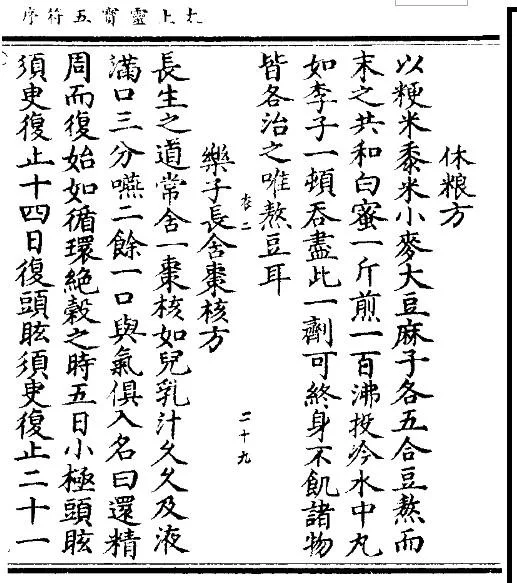 太上靈寳五符序
休粮方
以粳米黍米小麥大豆麻子各五合豆熬而
末之共和白蜜一斤煎一百沸投冷水中丸
如李子一頓吞盡此一劑可終身不飢諸物
皆各治之唯熬豆耳
卷二 二十九
樂子長含棗核方
長生之道常含一棗核如兒乳汁久久及液
滿口三分嚥二餘一口與氣俱入名曰還精
周而復始如循環絶穀之時五日小極頭眩
須臾復止十四日復頭眩須臾復止二十一